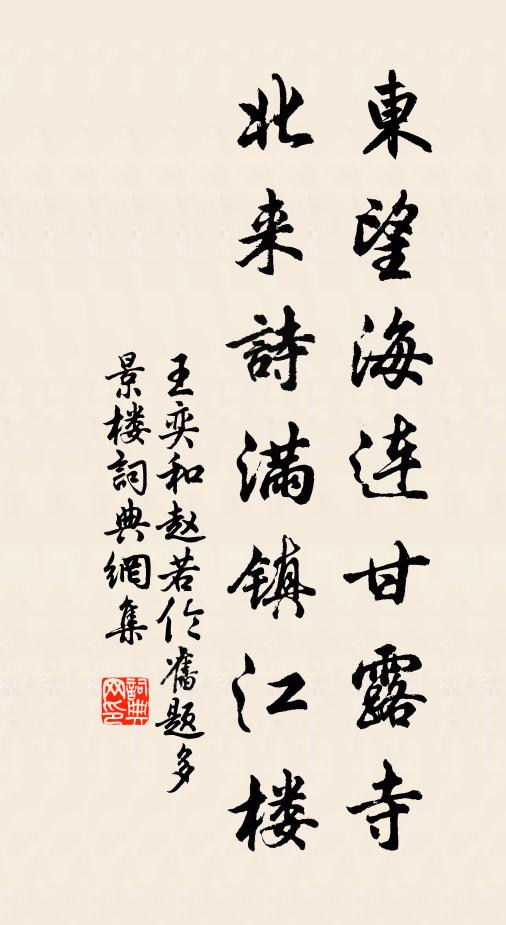 東望海连甘露寺
北来詩满镇江楼
王奕和赵若伀舊题多
景楼詞典網集
詞典
网印